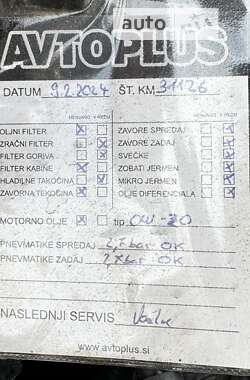 auto
AVTOPLUS
DATUM 9.2.2024 ŠT. KM 31126
MENJANO V REDU MENJANO V REDU
OLJNI FILTER ZAVORE SPREDAJ
ZRAČNI FILTER ZAVORE ZADAJ
FILTER GORIVA SVEČKE
FILTER KABINE ZOBATI JERMEN
HLADILNE TEKOČINA MIKRO JERMEN
ZAVORNA TEKOČINA OLJE DIFERENCIALA
MOTORNO OLJE tip 0W-20
PNEVMATIKE SPREDAJ bar OK
PNEVMATIKE ZADAJ OK
NASLEDNJI SERVIS
www.avtoplus.si